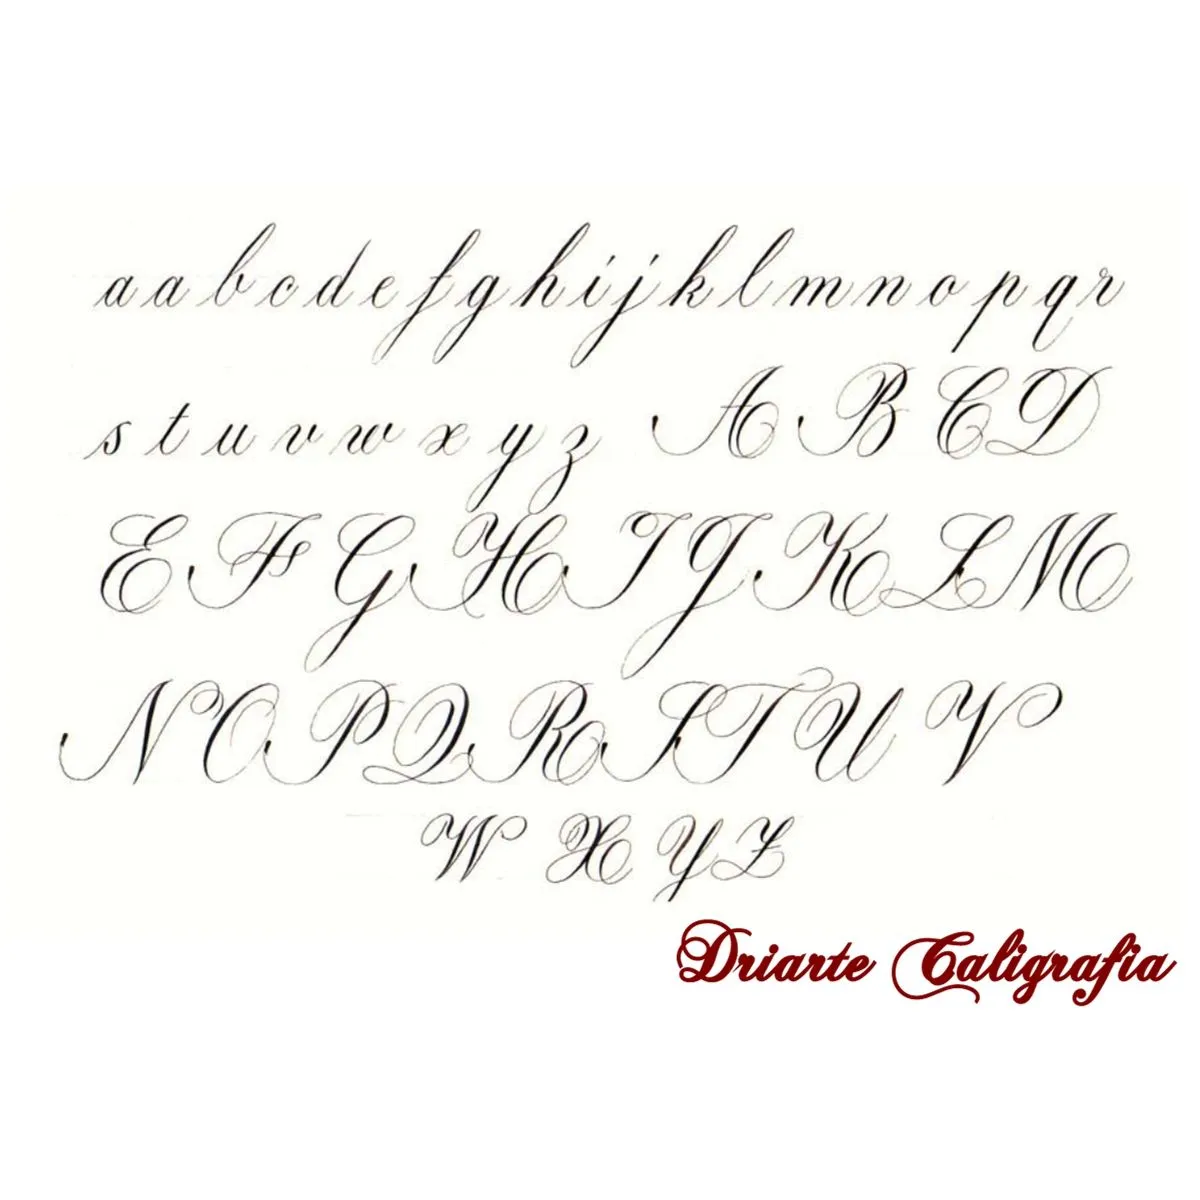 a a b c d e f g h i j k l m n o p q r
s t u v w x y z A B C D
E F G H I J K L M
N O P Q R S T U V
W X Y Z
Driarte Caligrafia